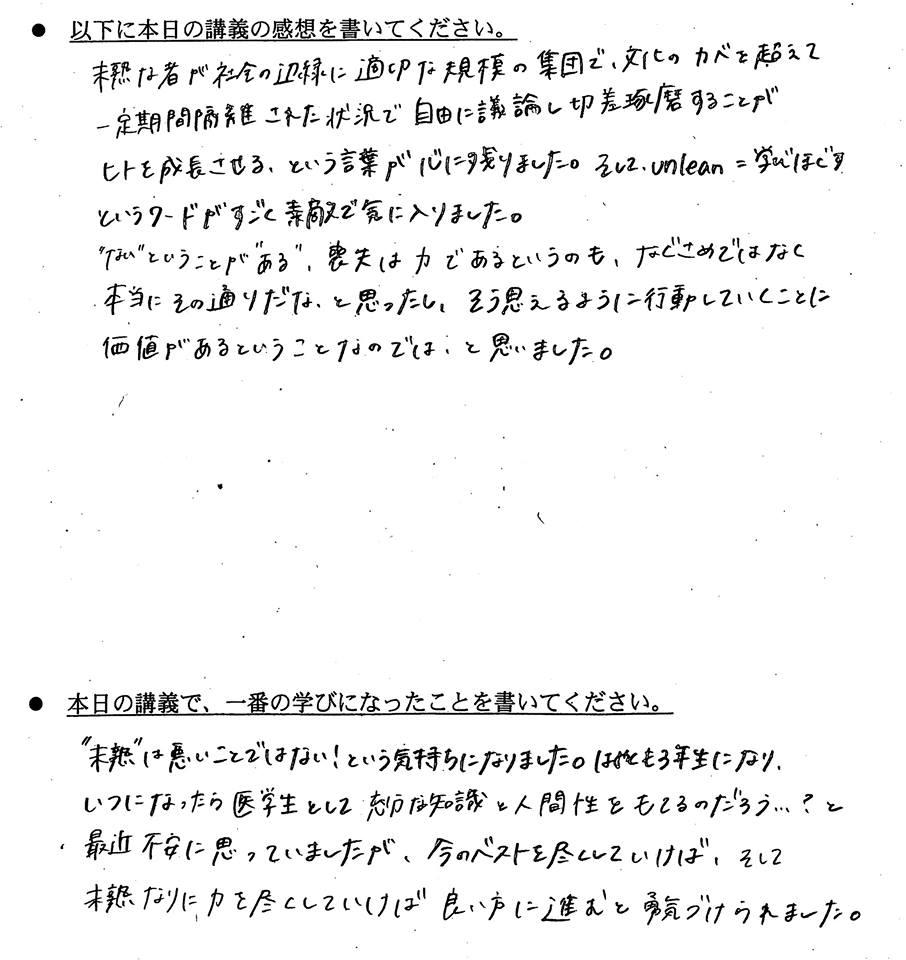 ● 以下に本日の講義の感想を書いてください。
未熟な者が社会の辺縁に適切な規模の集団で、文化のカベを超えて
一定期間隔離された状況で自由に議論し切差琢磨することが
ヒトを成長させる、という言葉が心に残りました。そして、unlean=学びほぐす
というワードがすごく素敵で気に入りました。
"ない"ということが"ある"、喪失は力であるというのも、なぐさめではなく
本当にその通りだな、と思ったし、そう思えるように行動していくことに
価値があるということなのでは、と思いました。
● 本日の講義で、一番の学びになったことを書いてください。
"未熟"は悪いことではない！という気持ちになりました。3年生になり、
いつになったら医学生として充分な知識と人間性をもてるのだろう…？と
最近不安に思っていましたが、今のベストを尽くしていけば、そして
未熟なりに力を尽くしていけば良い方に進むと勇気づけられました。